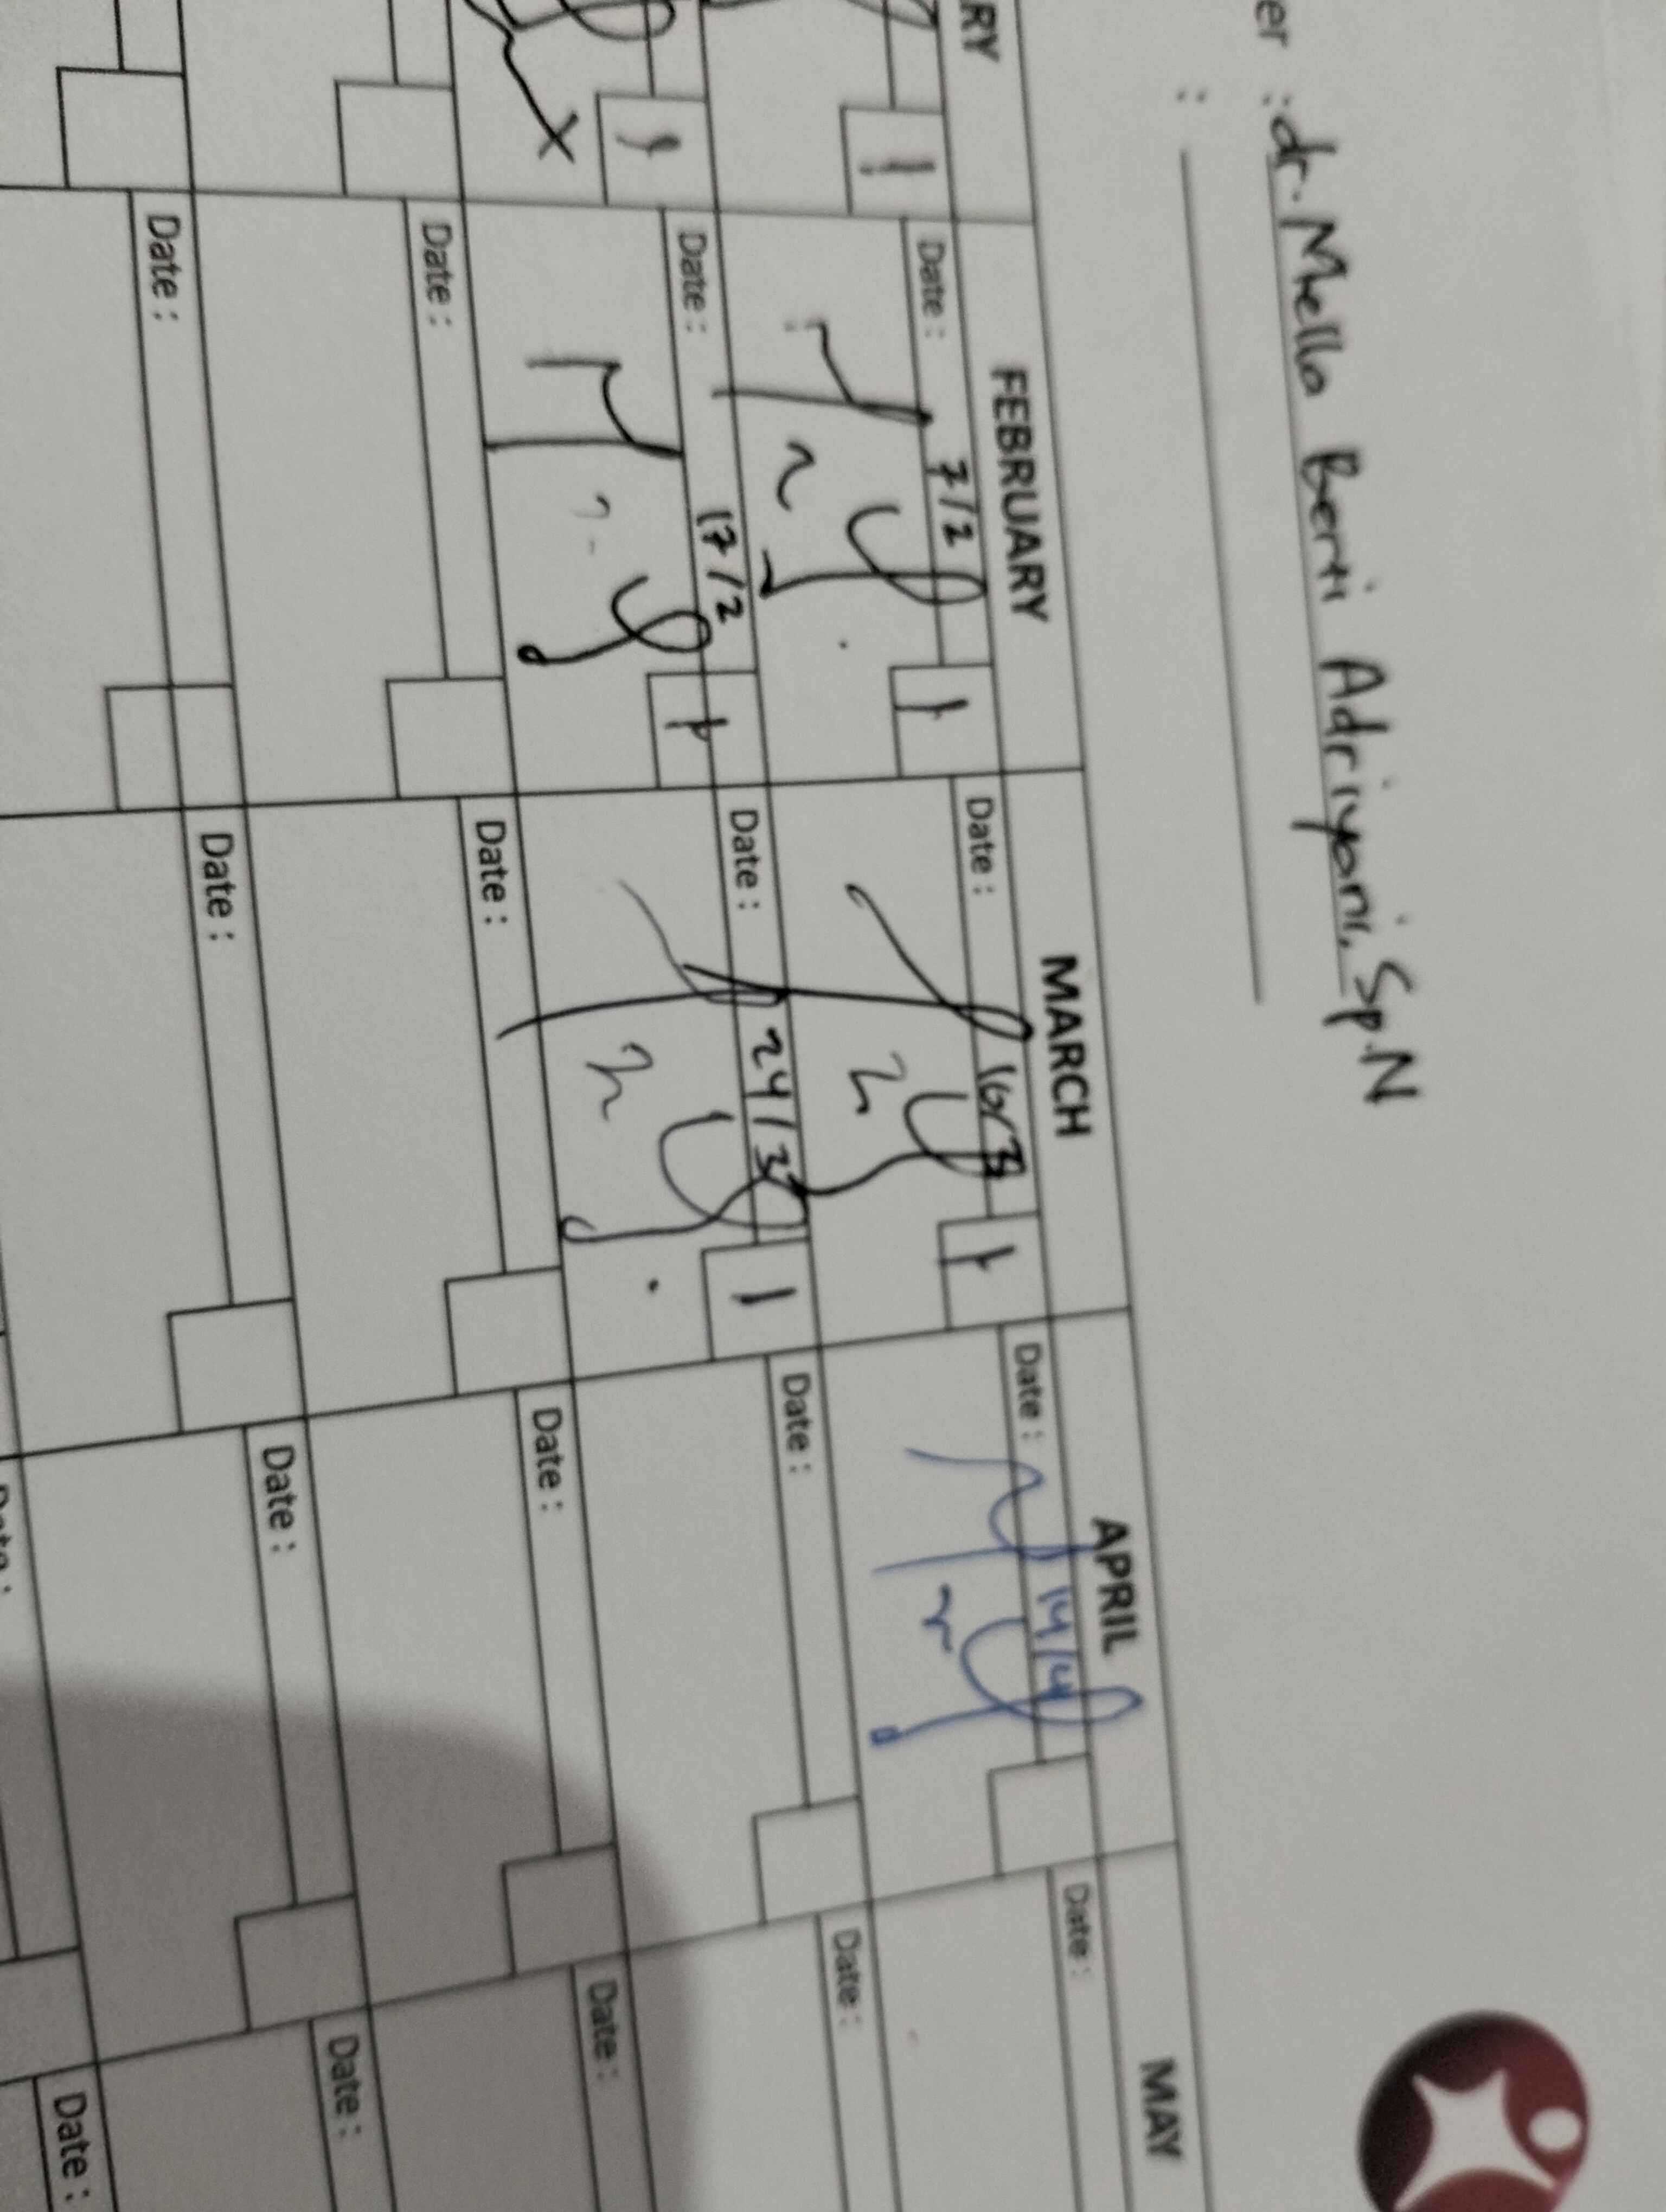 er : dr. Mello Berti Adriyani, Sp.N
:
RY FEBRUARY MARCH APRIL MAY
1 Date : 7/2 1 Date : 16/3 1 Date : 14/4 Date :
1 Date : 17/2 1 Date : 24/3 1 Date : Date :
x
Date : Date : Date : Date :
Date : Date : Date : Date :
Date : Date :